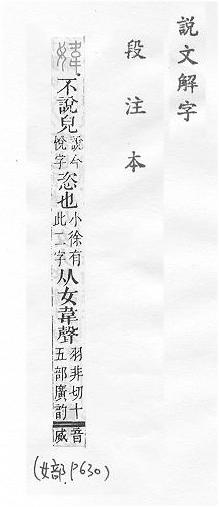 說文解字
段注本
媁 不說皃說今悅字恣也小徐有此二字从女韋聲羽非切十五部廣韵音威
(女部 P630)